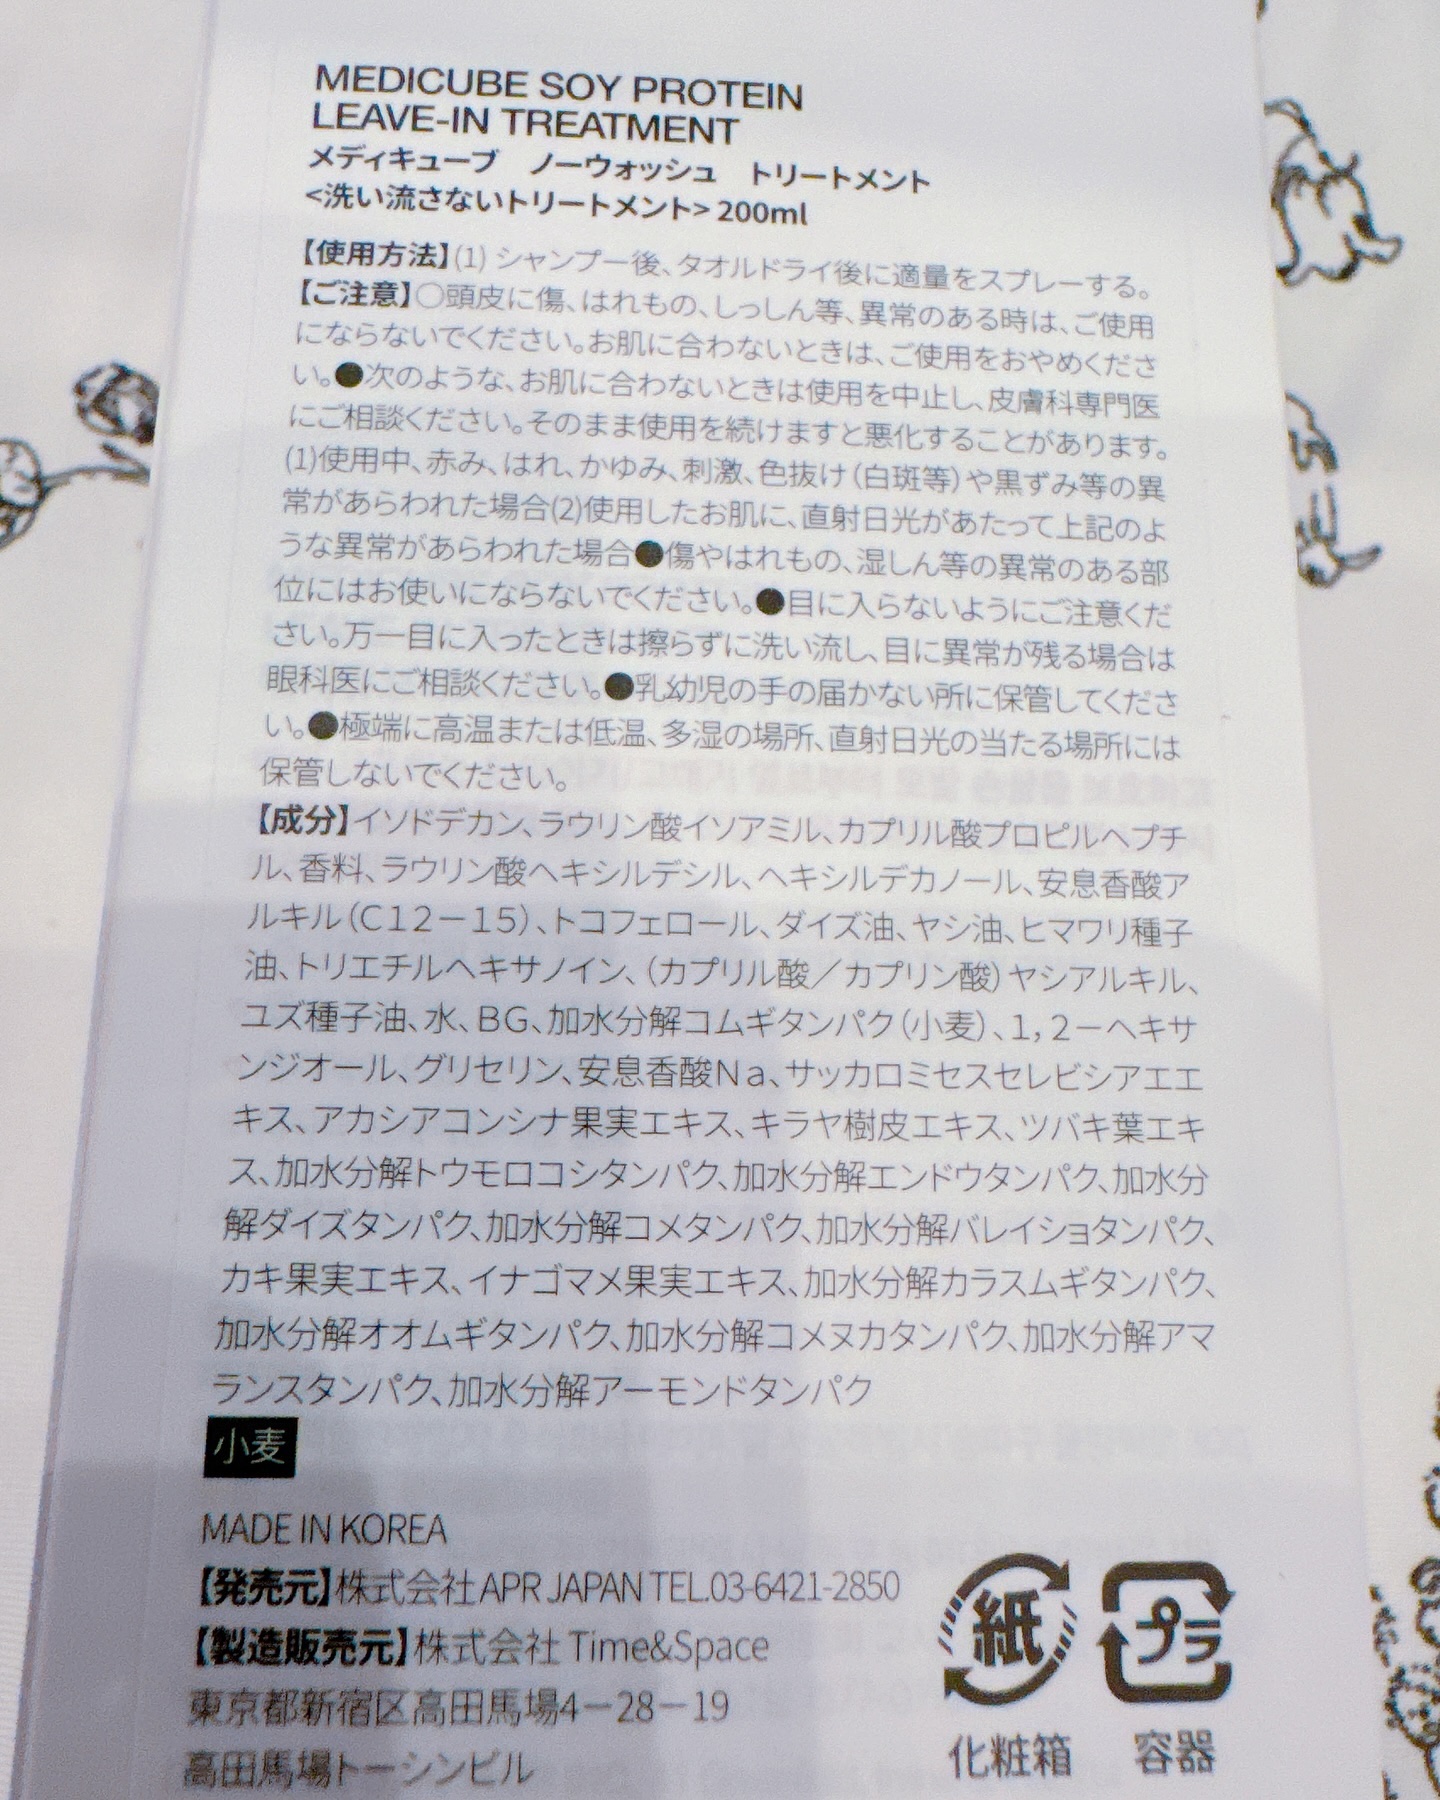 MEDICUBE SOY PROTEIN
LEAVE-IN TREATMENT
メディキューブ　ノーウォッシュ　トリートメント
<洗い流さないトリートメント> 200ml
【使用方法】(1) シャンプー後、タオルドライ後に適量をスプレーする。
【ご注意】○頭皮に傷、はれもの、しっしん等、異常のある時は、ご使用
にならないでください。お肌に合わないときは、ご使用をおやめくださ
い。●次のような、お肌に合わないときは使用を中止し、皮膚科専門医
にご相談ください。そのまま使用を続けますと悪化することがあります。
(1)使用中、赤み、はれ、かゆみ、刺激、色抜け（白斑等）や黒ずみ等の異
常があらわれた場合(2)使用したお肌に、直射日光があたって上記のよ
うな異常があらわれた場合●傷やはれもの、湿しん等の異常のある部
位にはお使いにならないでください。●目に入らないようにご注意くだ
さい。万一目に入ったときは擦らずに洗い流し、目に異常が残る場合は
眼科医にご相談ください。●乳幼児の手の届かない所に保管してくださ
い。●極端に高温または低温、多湿の場所、直射日光の当たる場所には
保管しないでください。
【成分】イソドデカン、ラウリン酸イソアミル、カプリル酸プロピルヘプチ
ル、香料、ラウリン酸ヘキシルデシル、ヘキシルデカノール、安息香酸ア
ルキル（C12－15）、トコフェロール、ダイズ油、ヤシ油、ヒマワリ種子
油、トリエチルヘキサノイン、（カプリル酸／カプリン酸）ヤシアルキル、
ユズ種子油、水、BG、加水分解コムギタンパク（小麦）、1，2－ヘキサ
ンジオール、グリセリン、安息香酸Na、サッカロミセスセレビシアエエ
キス、アカシアコンシナ果実エキス、キラヤ樹皮エキス、ツバキ葉エキ
ス、加水分解トウモロコシタンパク、加水分解エンドウタンパク、加水分
解ダイズタンパク、加水分解コメタンパク、加水分解バレイショタンパク、
カキ果実エキス、イナゴマメ果実エキス、加水分解カラスムギタンパク、
加水分解オオムギタンパク、加水分解コメヌカタンパク、加水分解アマ
ランスタンパク、加水分解アーモンドタンパク
小麦
MADE IN KOREA
【発売元】株式会社 APR JAPAN TEL.03-6421-2850
【製造販売元】株式会社 Time&Space
東京都新宿区高田馬場4－28－19
高田馬場トーシンビル
紙
プラ
化粧箱
容器